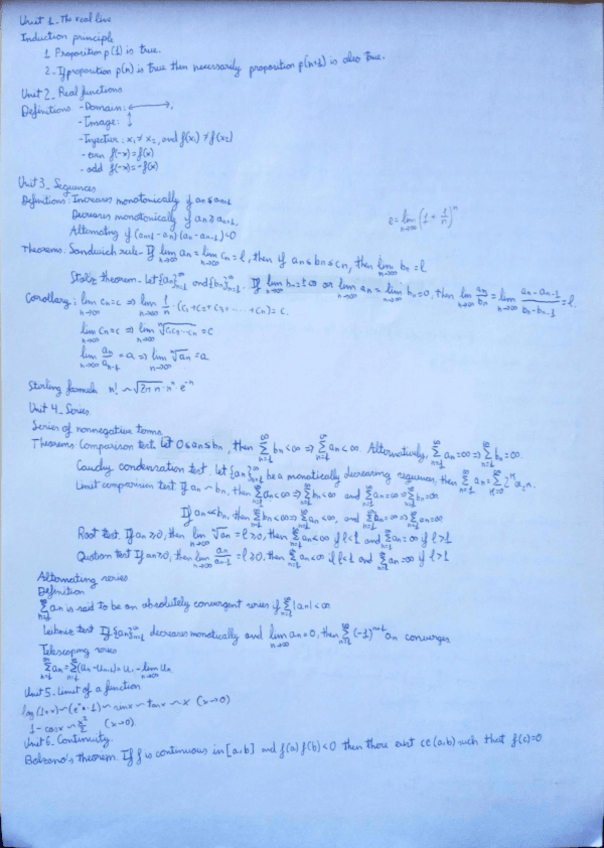 Unit 1. The real line
Induction principle
1 Proposition p(1) is true.
2. If proposition p(n) is true then necessarily proposition p(n+1) is also true.
Unit 2. Real functions
Definitions - Domain: ↔,
- Image: ↕
- Injection: x₁ ≠ x₂, and f(x₁) ≠ f(x₂)
- even f(-x)=f(x)
- odd f(-x)=-f(x)
Unit 3. Sequences
Definitions: Increases monotonically if an ≤ an+1
Decreases monotonically if an ≥ an+1
Alternating if (an+1 - an)(an - an-1)<0
e = lim n→∞ (1 + 1/n)^n
Theorems. Sandwich rule - If lim n→∞ an = lim n→∞ cn = l, then if an ≤ bn ≤ cn, then lim n→∞ bn = l
Stolz theorem - Let {an}∞n=1 and {bn}∞n=1. If lim n→∞ bn = ±∞ or lim n→∞ an = lim n→∞ bn = 0, then lim n→∞ an/bn = lim n→∞ (an - an-1)/(bn - bn-1) = l.
Corollary: lim n→∞ cn = c ⇒ lim n→∞ 1/n · (c₁+c₂+c₃+ ····· +cn) = c.
lim n→∞ cn = c ⇒ lim n→∞ ⁿ√c₁c₂···cn = c
lim n→∞ an/an-1 = a ⇒ lim n→∞ ⁿ√an = a
Stirling formula n! ~ √2πn · nⁿ · e⁻ⁿ
Unit 4. Series
Series of nonnegative terms
Theorems Comparison test. Let 0 ≤ an ≤ bn, then ∞Σn=1 bn < ∞ ⇒ ∞Σn=1 an < ∞. Alternatively, ∞Σn=1 an = ∞ ⇒ ∞Σn=1 bn = ∞.
Cauchy condensation test. Let {an}∞n=1 be a monotically decreasing sequence, then ∞Σn=1 an = ∞Σn=0 2ⁿ a2ⁿ.
Limit comparison test If an ~ bn, then ∞Σn=1 an < ∞ ⇒ ∞Σn=1 bn < ∞ and ∞Σn=1 an = ∞ ⇒ ∞Σn=1 bn = ∞
If an << bn, then ∞Σn=1 bn < ∞ ⇒ ∞Σn=1 an < ∞, and ∞Σn=1 bn = ∞ ⇒ ∞Σn=1 an = ∞
Root test. If an ≥ 0, then lim n→∞ ⁿ√an = l ≥ 0, then ∞Σn=1 an < ∞ if l<1 and ∞Σn=1 an = ∞ if l>1
Quotient test If an ≥ 0, then lim n→∞ an/an-1 = l ≥ 0, then ∞Σn=1 an < ∞ if l<1 and ∞Σn=1 an = ∞ if l>1
Alternating series
Definition
∞Σn=1 an is said to be an absolutely convergent series if ∞Σn=1 |an| < ∞
Leibniz test If {an}∞n=1 decreases monotically and lim n→∞ an = 0, then ∞Σn=1 (-1)ⁿ⁺¹ an converges
Telescoping series
∞Σn=1 an = ∞Σn=1 (un - un+1) = u₁ - lim n→∞ un
Unit 5. Limit of a function
log(1+x) ~ (eˣ-1) ~ sinx ~ tanx ~ x (x→0)
1 - cosx ~ x²/2 (x→0).
Unit 6. Continuity.
Bolzano's theorem. If f is continuous in [a,b] and f(a)f(b)<0 then there exist c∈(a,b) such that f(c)=0